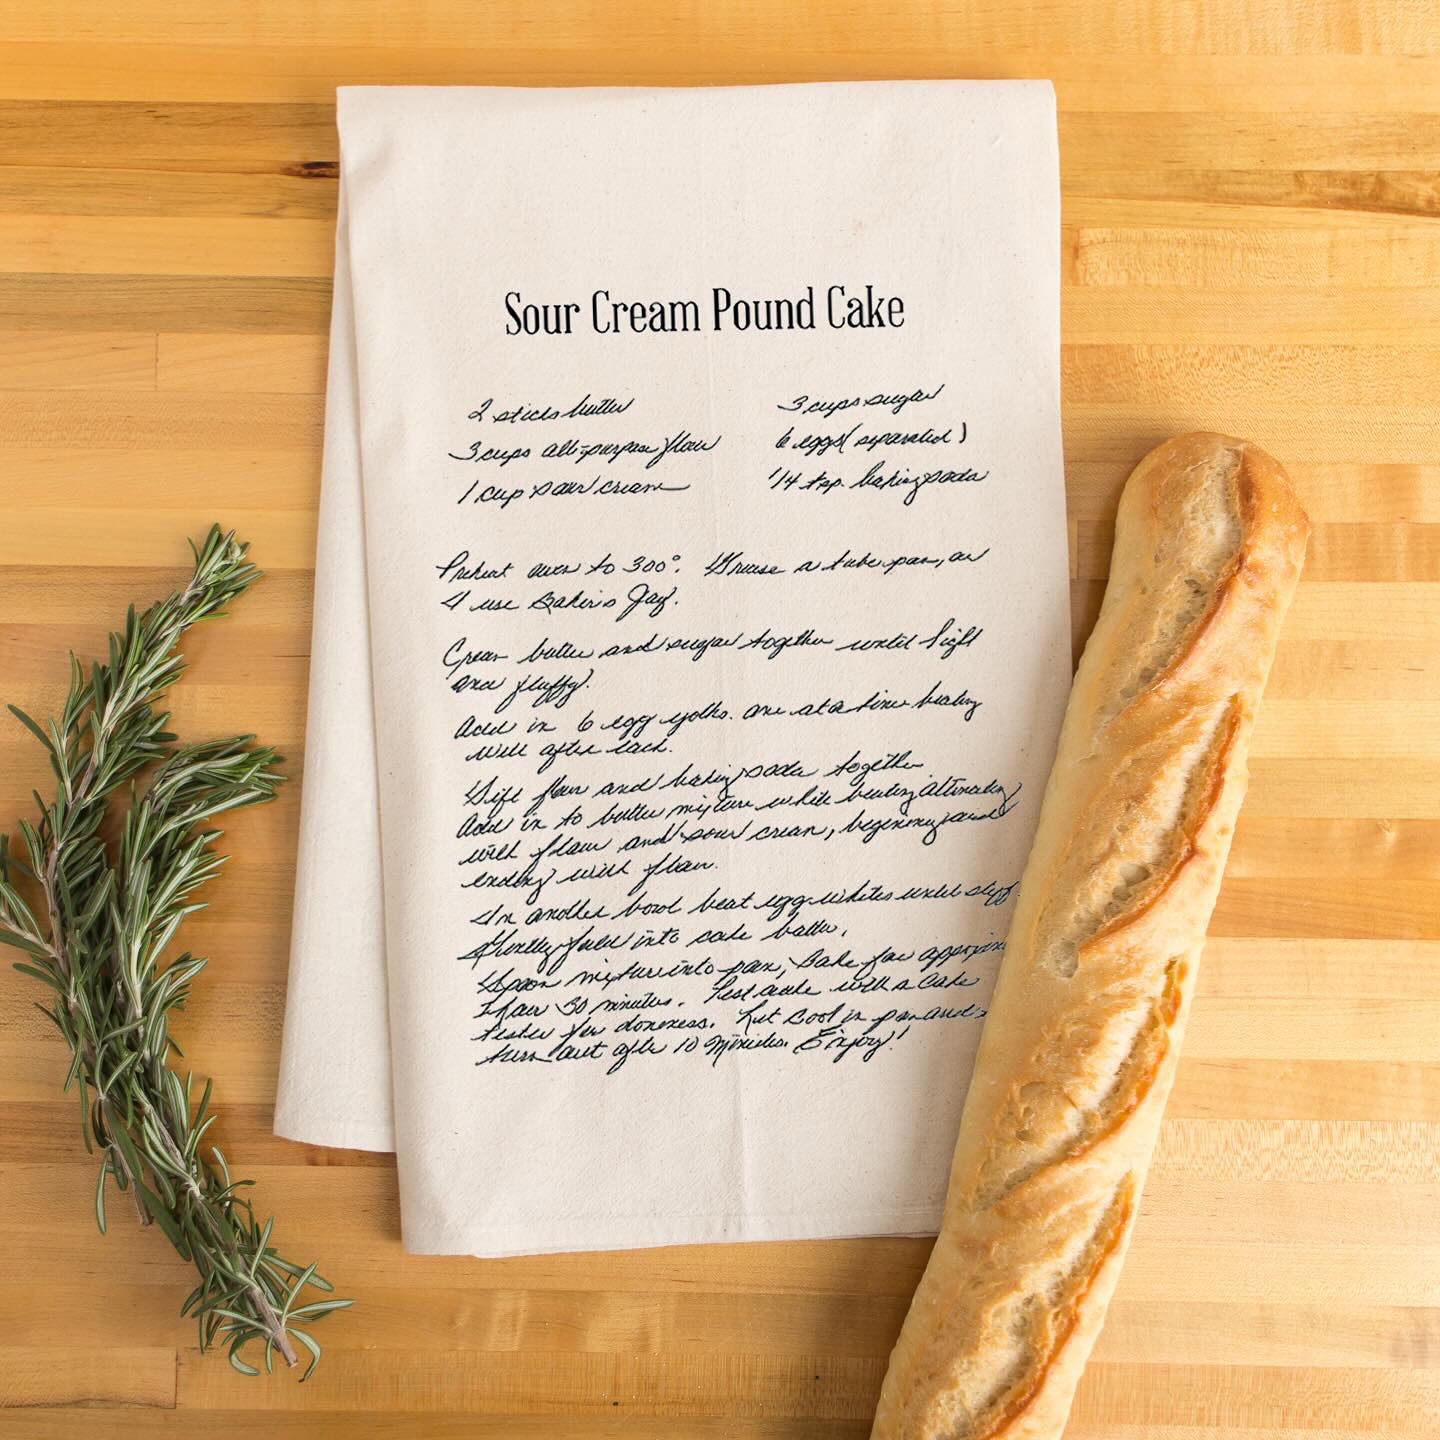 Sour Cream Pound Cake
2 sticks butter 3 cups sugar
3 cups all-purpose flour 6 eggs (separated)
1 cup sour cream 1/4 tsp. baking soda
Preheat oven to 300°. Grease a tube pan, or
I use Baker's Joy.
Cream butter and sugar together until light
and fluffy.
Add in 6 egg yolks. one at a time beating
well after each.
Sift flour and baking soda together
Add in to butter mixture while beating alternating
with flour and sour cream, beginning and
ending with flour.
In another bowl beat egg whites until stiff.
Gently fold into cake batter.
Spoon mixture into pan, Bake for
1 hour 30 minutes. Test cake with a cake
tester for doneness. Let cool in pan and
turn out after 10 minutes. Enjoy!